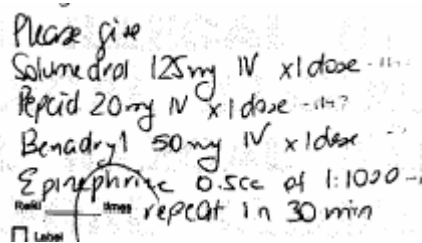 Please give
Solumedrol 125mg IV x1 dose
Pepcid 20mg IV x1 dose
Benadryl 50mg IV x1 dose
Epinephrine 0.5cc of 1:1000
Refill times repeat in 30 min
Label